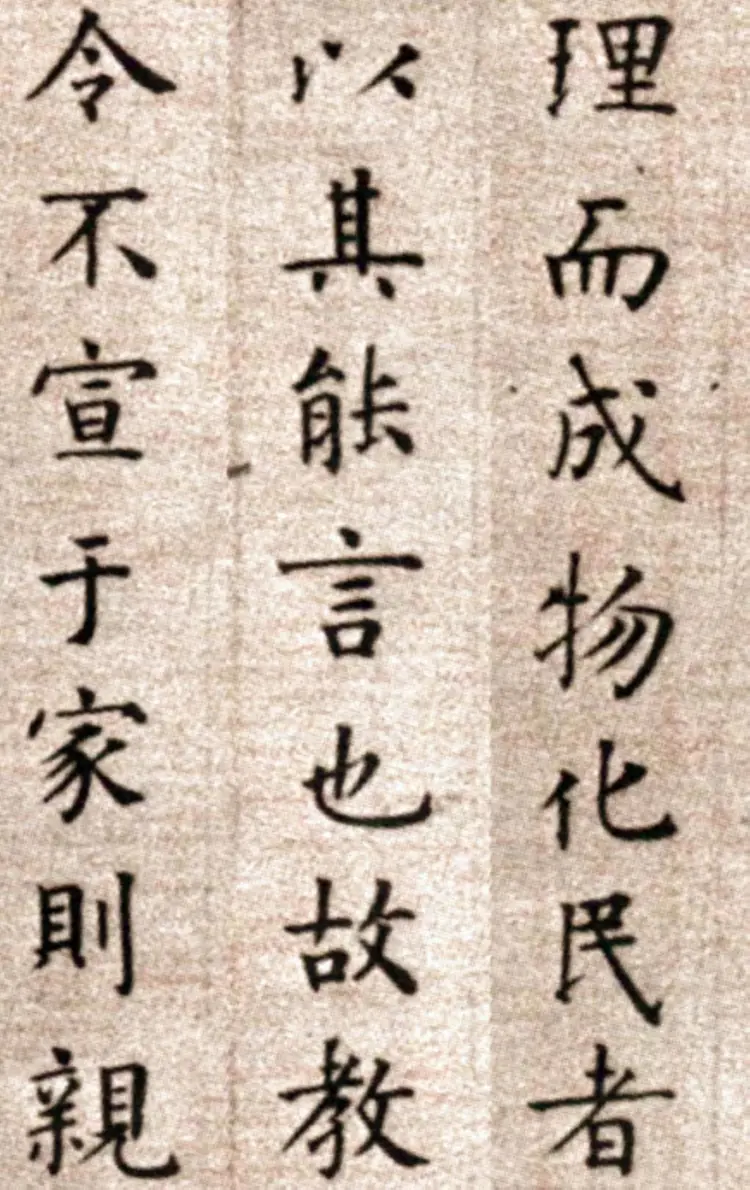 理而成物化民者
以其能言也故教
令不宣于家則親